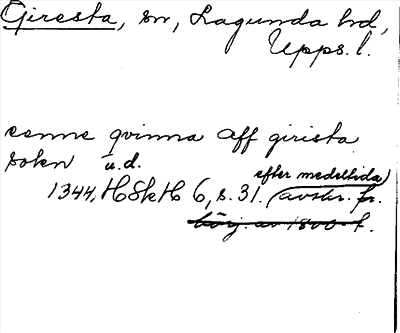 Giresta, sn, Lagunda hd,
Upps. l.
eenne qvinna aff girista
sokn u.d.
1344, HSkH 6, s. 31. (avskr. fr. efter medeltida)
börj. av 1800-t.